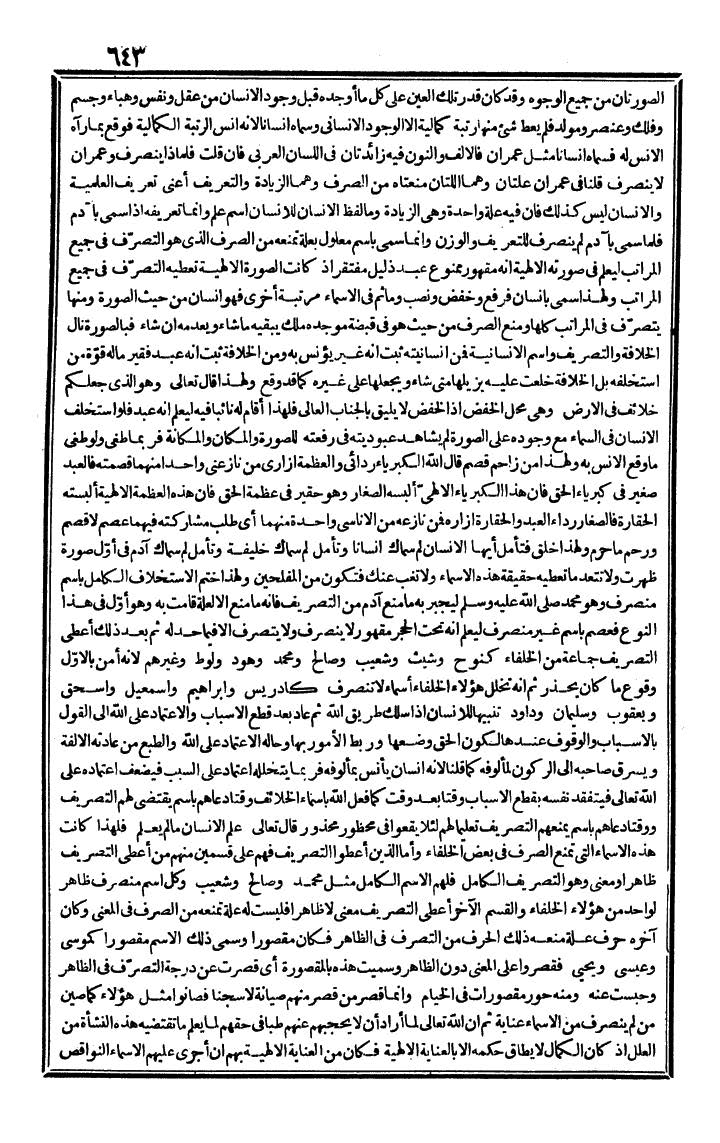 ٦٤٣
الصورتان من جميع الوجوه وقد كان قدر تلك العين على كل ما أوجده قبل وجود الانسان من عقل ونفس وهباء وجسم
وفلك وعنصر ومولد فلم يعط شئ منها رتبة كمالية الا الوجود الانسانى وسماه انسانا لانه انس الرتبة الكمالية فوقع بما رآه
الانس له فسماه انسانا مثل عمران فالالف والنون فيه زائدتان فى اللسان العربى فان قلت فلماذا ينصرف وعمران
لا ينصرف قلنا فى عمران علتان وهما اللتان منعتاه من الصرف وهما الزيادة والتعريف أعنى تعريف العلمية
والانسان ليس كذلك فان فيه علة واحدة وهى الزيادة ومالفظ الانسان للانسان اسم علم وانما تعريفه اذا سمى با دم
فلما سمى با دم لم ينصرف للتعريف والوزن وانما سمى باسم معلول بعلة تمنعه من الصرف الذى هو التصرّف فى جميع
المراتب ليعلم فى صورته الالهية انه مقهور ممنوع عبد ذليل مفتقر اذ كانت الصورة الالهية تعطيه التصرّف فى جميع
المراتب ولهذا سمى بانسان فرفع وخفض ونصب وماثم فى الاسماء مرتبة أخرى فهو انسان من حيث الصورة ومنها
يتصرّف فى المراتب كلها ومنع الصرف من حيث هو فى قبضة موجده ملك يبقيه ما شاء ويعدمه ان شاء فبالصورة نال
الخلافة والتصريف واسم الانسانية فمن انسانيته ثبت انه غير يؤنس به ومن الخلافة ثبت انه عبد فقير ماله قوّة من
استخلفه بل الخلافة خلعت عليه يزيلها متى شاء ويجعلها على غيره كما قد وقع ولهذا قال تعالى وهو الذى جعلكم
خلائف فى الارض وهى محل الخفض اذ الخفض لا يليق بالجناب العالى فلهذا أقام له نائبا فيه ليعلم انه عبد فلو استخلف
الانسان فى السماء مع وجوده على الصورة لم يشاهد عبوديته فى رفعته للصورة والمكان والمكانة فربما طغى ولو طغى
ما وقع الانس به ولهذا من زاحم قصم قال الله الكبرياء ردائى والعظمة ازارى من نازعنى واحدا منهما قصمته فالعبد
صغير فى كبرياء الحق فان هذا الكبرياء الالهىّ ألبسه الصغار وهو حقير فى عظمة الحق فان هذه العظمة الالهية ألبسته
الحقارة فالصغار رداء العبد والحقارة ازاره فمن نازعه من الاناسى واحدة منهما أى طلب مشاركته فيهما عصم لا قصم
ورحم ما حرم ولهذا خلق فتأمل أيها الانسان لم سماك انسانا وتأمل لم سماك خليفة وتأمل لم سماك آدم فى أوّل صورة
ظهرت ولا تتعد ما تعطيه حقيقة هذه الاسماء ولا تغب عنك فتكون من المفلحين ولهذا ختم الاستخلاف الكامل باسم
منصرف وهو محمد صلى الله عليه وسلم ليجبر به ما منع آدم من التصريف فانه ما منع الا لعلة قامت به وهو أوّل فى هذا
النوع فعصم باسم غير منصرف ليعلم انه تحت الحجر مقهور لا ينصرف ولا يتصرف الا فيما حد له ثم بعد ذلك أعطى
التصريف جماعة من الخلفاء كنوح وشيث وشعيب وصالح ومحمد وهود ولوط وغيرهم لانه أمن بالاوّل
وقوع ما كان يحذر ثم انه تخلل هؤلاء الخلفاء أسماء لا تنصرف كادريس وابراهيم واسمعيل واسحق
ويعقوب وسليمان وداود تنبيها للانسان اذا سلك طريق الله ثم عاد بعد قطع الاسباب والاعتماد على الله الى القول
بالاسباب والوقوف عندها لكون الحق وضعها وربط الأمور بها وحاله الاعتماد على الله والطبع من عادته الالفة
ويسرق صاحبه الى الركون لمألوفه كما قلنا لانه انسان يأنس بمألوفه فربما يتخلله اعتماد على السبب فيضعف اعتماده على
الله تعالى فيتفقد نفسه بقطع الاسباب وقتا بعد وقت كما فعل الله باسماء الخلائف وقتا دعاهم باسم يقتضى لهم التصريف
ووقتا دعاهم باسم يمنعهم التصريف تعليما لهم لئلا يقعوا فى محظور محذور قال تعالى علم الانسان مالم يعلم فلهذا كانت
هذه الاسماء التى تمنع الصرف فى بعض الخلفاء وأما الذين أعطوا التصريف فهم على قسمين منهم من أعطى التصريف
ظاهرا ومعنى وهو التصريف الكامل فلهم الاسم الكامل مثل محمد وصالح وشعيب وكل اسم منصرف ظاهر
لواحد من هؤلاء الخلفاء والقسم الآخر أعطى التصريف معنى لا ظاهرا فليست له علة تمنعه من الصرف فى المعنى وكان
آخره حرف علة منعه ذلك الحرف من التصرف فى الظاهر فكان مقصورا وسمى ذلك الاسم مقصورا كموسى
وعيسى ويحيى فقصروا على المعنى دون الظاهر وسميت هذه بالمقصورة أى قصرت عن درجة التصرّف فى الظاهر
وحبست عنه ومنه حور مقصورات فى الخيام وانما قصر من قصر منهم صيانة لا سجنا فصانوا مثل هؤلاء كما صين
من لم ينصرف من الاسماء عناية ثم ان الله تعالى لما أراد أن لا يحجبهم عنهم طبا فى حقهم لما يعلم ما تقتضيه هذه النشأة من
العلل اذ كان الكمال لا يطاق حكمه الا بالعناية الالهية فكان من العناية الالهية بهم ان أجرى عليهم الاسماء النواقص